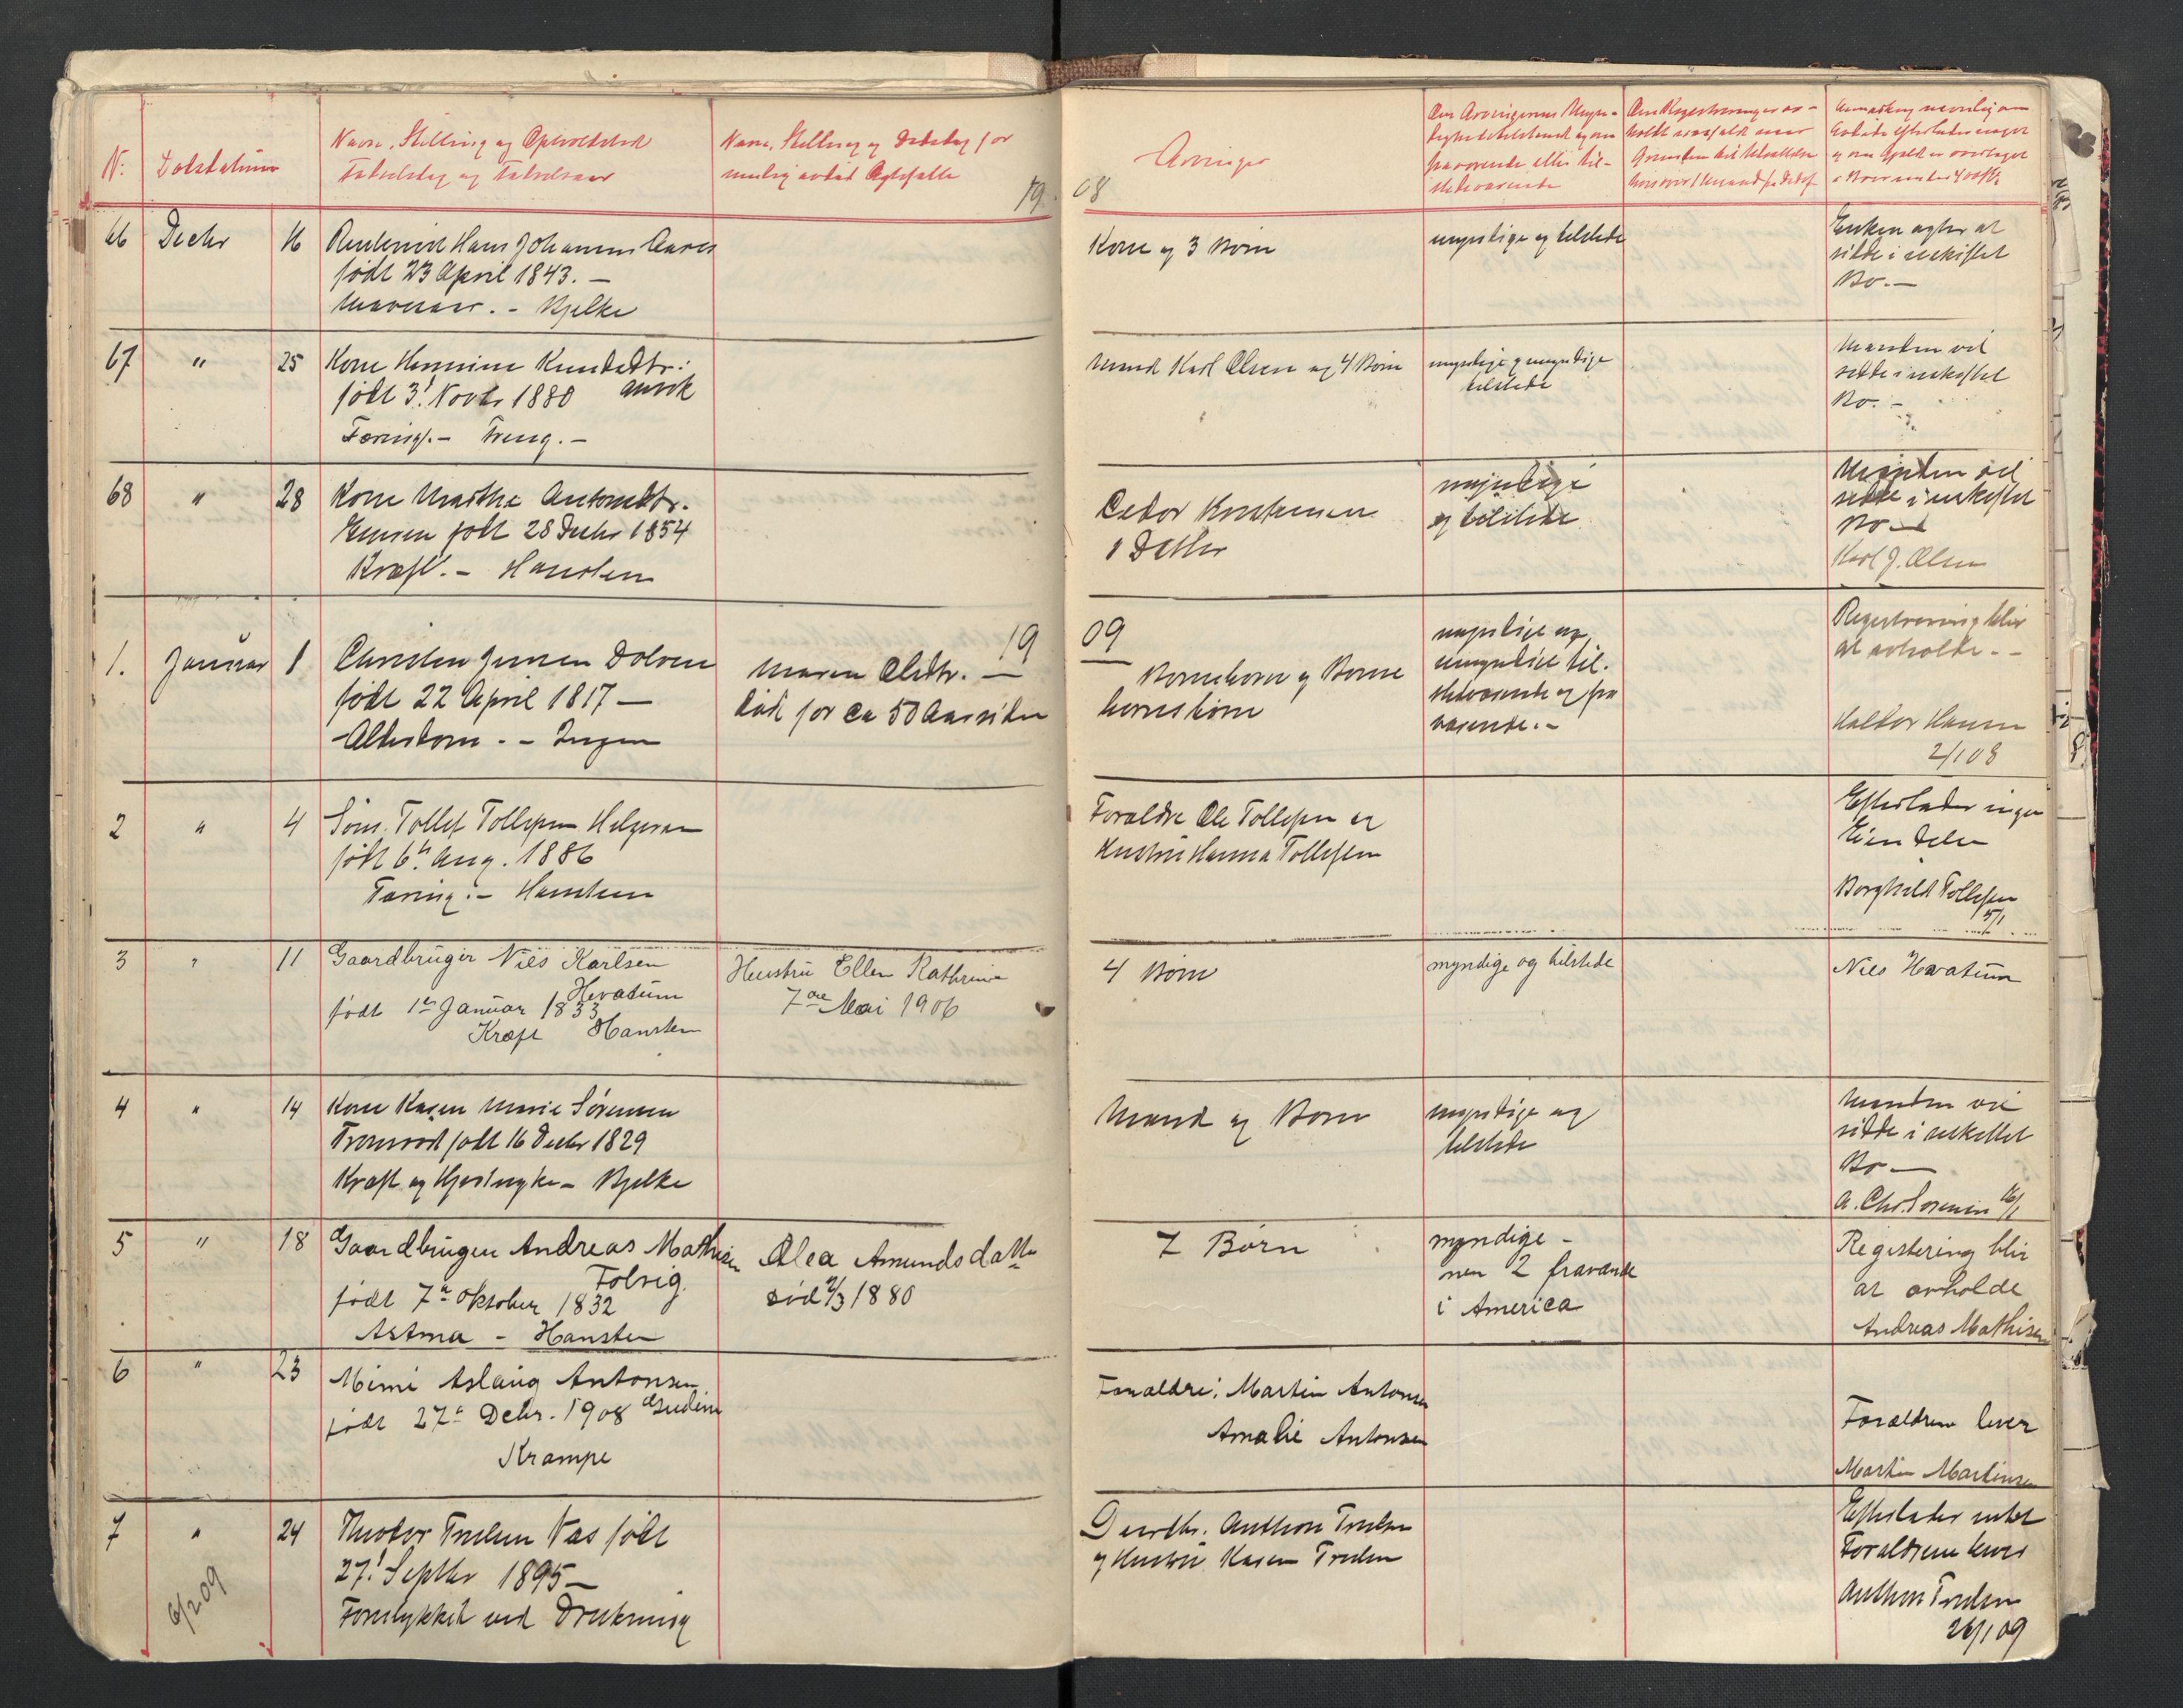 Nº
Dødsdatum
Navn, Stilling og Opholdssted
Fødselsdag og Fødselsaar
Navn, Stilling og Dødsdag for
mulig avdød Ægtefælle
19
08
Arvinger
Om Arvingernes Myn-
dighedstilstand og om
fraværende eller til-
stedeværende
Om Registreringer av-
holdt
Anmærkning navnlig om
Avdøde efterlader noget
og om Gjæld er overtaget
66 Decbr 16
Hans Johannes Aares
født 23 April 1843. —
Bjelke
Kone og 3 Børn
myndige og tilstede
Enken agter at
sidde i uskiftet
Bo. —
67 " 25
Kone Hermine Knudsdtr.
Anvik
født 3! Novbr 1880
Tæring. — Treng. —
Mand Karl Olsen og 4 Børn
myndige og umyndige
tilstede
Manden vil
sidde i uskiftet
Bo. —
68 " 28
Kone Marthe Antonsdtr.
Jensen født 28 Decbr 1854
Kræft. — Hansten
Peder
1 Datter
myndige
og tilstede
Manden vil
sidde i uskiftet
Bo —
Karl J. Olsen
19
09
1. Januar 1
Christen Jensen Dolven
født 22 April 1817 —
Alderdom. — Ingen
Maren Olsdtr. —
død for ca 50 Aar siden
Børnebørn og Børne
børnsbørn
myndige og
umyndige til-
stedeværende og fra
værende. —
Registrering blir
at avholde. —
Haldor Hansen
2/1 08
2 " 4
Søn. Tollef Tollefsen Helgeroa
født 6te Aug. 1886
Tæring. — Hansten
Forældre Ole Tollefsen og
Hustru Hanna Tollefsen
Efterlader ingen
Eiendeler
Borghild Tollefsen
5/1
3 " 11
Gaardbruger Nils Karlsen
Hevatum
født 1ste Januar 1833
Kræft Hansten
Hustru Ellen Kathrine
7de Mai 1906
4 Børn
myndige og tilstede
Nils Hvatum
4 " 14
Kone Karen Marie Sørensen
født 16 Decbr 1829
Kræft og Hjertesyke — Bjelke
Mand og Børn
myndige og
tilstede
Manden vil
sidde i uskiftet
Bo —
A. Chr. Sørensen 16/1
5 " 18
Gaardbruger Andreas Mathisen
Folvig.
født 7de Oktober 1832
Astma — Hansten
Olea Amundsdatter
død 2/3 1880
7 Børn
myndige -
men 2 fraværende
i America
Registering blir
at avholde
Andreas Mathisen
6 " 23
Mimi Aslaug Antonsen
født 27de Debr. 1908
Krampe
Forældre: Martin Antonsen
Amalie Antonsen
Forældrene lever
Martin Martinsen
7 " 24
Theodor Trulsen Næs født
27! Septbr 1895 —
Forulykket ved Drukning
6/2 09
Anthon Trulsen
og Hustru Karen Trulsen
Efterlader intet
Forældrene lever
Anthon Trulsen
26/1 09